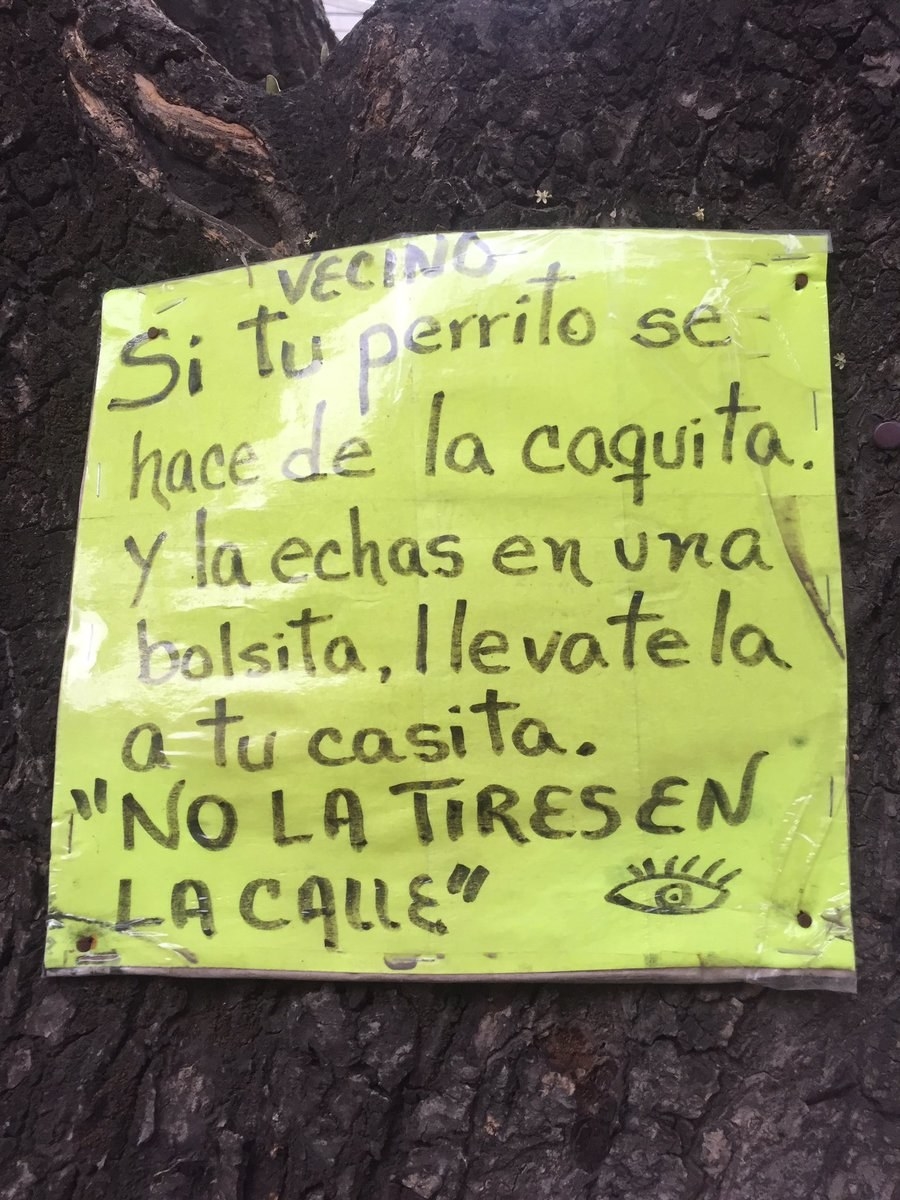 VECINO
Si tu perrito se
hace de la caquita.
y la echas en una
bolsita, llevatela
a tu casita.
"NO LA TIRES EN
LA CALLE"